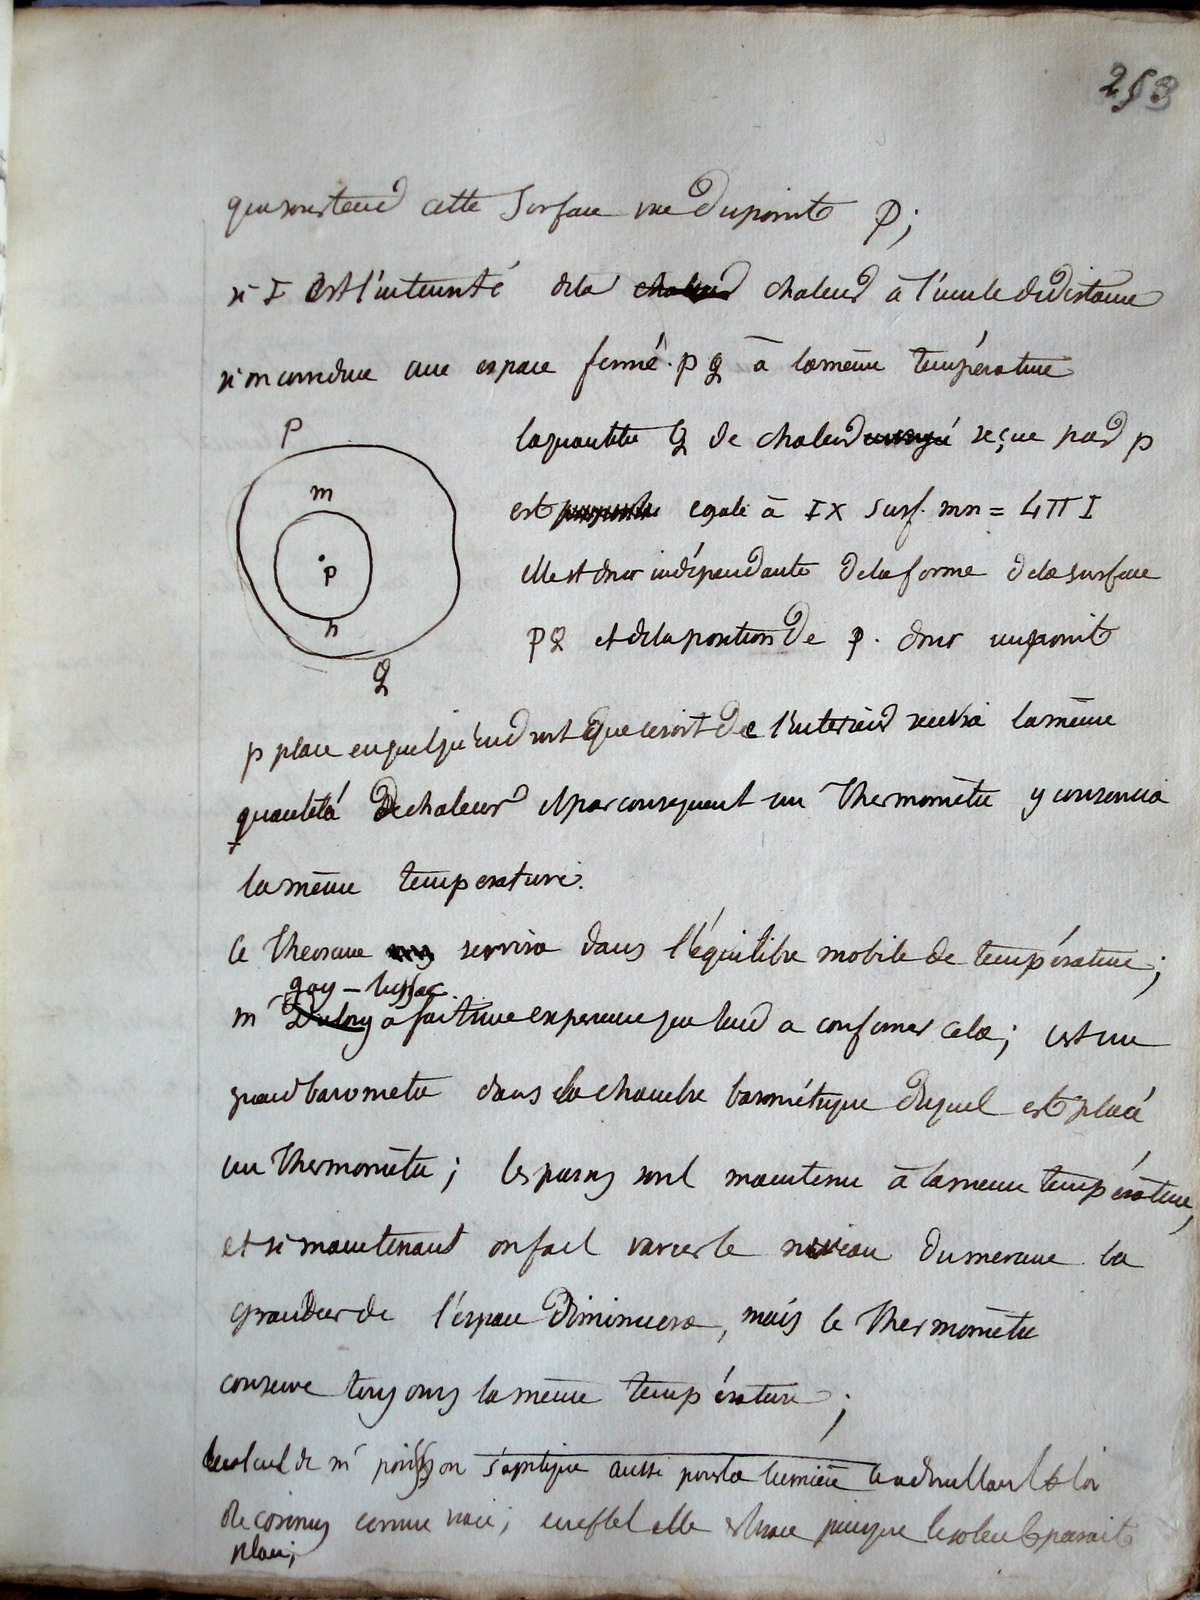 253
qui soustend cette surface vue du point P;
si I est l'intensité de la chaleur chaleur à l'unité de distance
si on considere un espace fermé. P Q à la même température
la quantité Q de chaleur envoyé reçue par p
est egale à I x surf. mn = 4π I
elle est donc indépendante de la forme de la surface
PQ et de la position de p. donc un point
P
m
p
n
Q
p placé en quelqu'endroit que ce soit de l'interieur recevra la même
quantité de chaleur et par consequent un thermomètre y conservera
la même temperature.
Ce theoreme servira dans l'équilibre mobile de température;
gay-lussac
mr Dulong a fait une experience qui tend a confirmer cela; c'est un
grand barometre dans la chambre barométrique duquel est placé
un thermomètre; les parois sont maintenu à la meme température,
et si maintenant on fait varier le niveau du mercure la
grandeur de l'espace diminuera, mais le thermomètre
conserve toujours la même température;
le calcul de mr poisson s'aplique aussi pour la lumière en admettant la loi
de cosinus comme vraie; en effet elle est vraie puisque le soleil parait
plan;